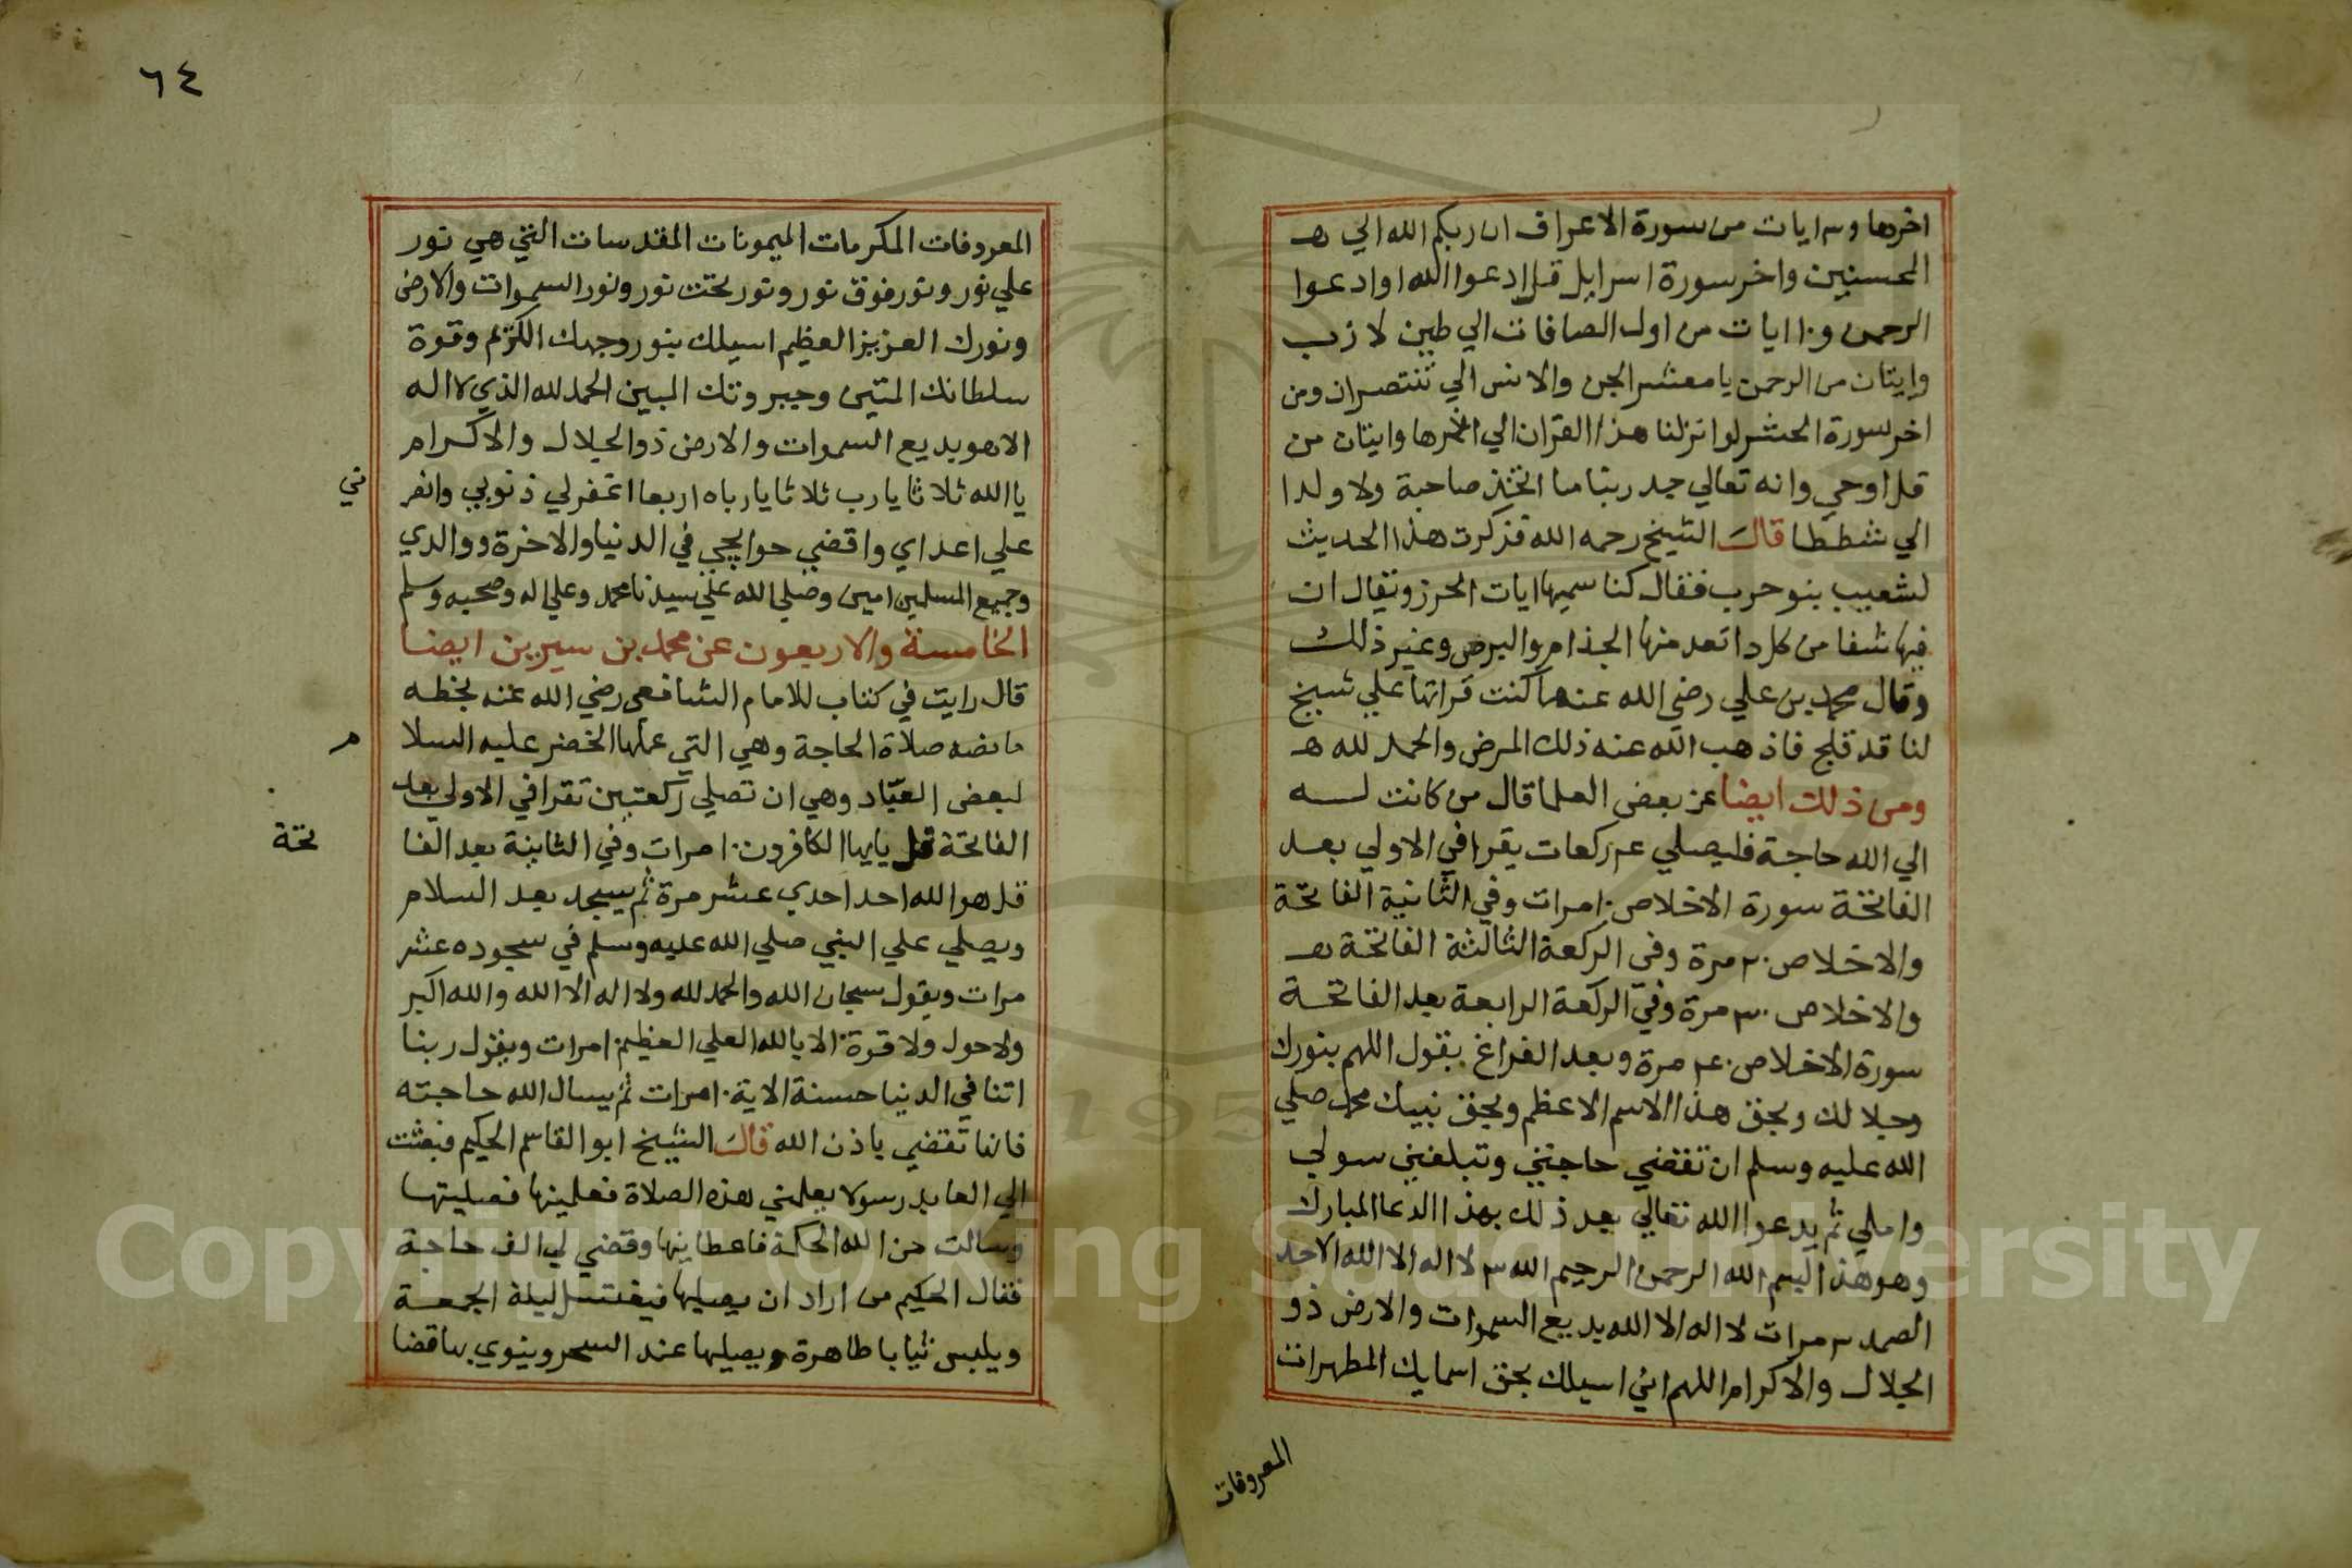 اخرها و٣ ايات من سورة الاعراف ان ربكم الله الي هـ
المحسنين واخر سورة اسرايل قل ادعوا الله او ادعوا
الرحمن و١٠ ايات من اول الصافات الي طين لازب
وايتان من الرحمن يا معشر الجن والانس الي تنتصران ومن
اخر سورة الحشر لو انزلنا هذا القران الي اخرها وايتان من
قل اوحي وانه تعالي جد ربنا ما اتخذ صاحبة ولا ولدا
الي شططا قال الشيخ رحمه الله فذكرت هذا الحديث
لشعيب بنو حرب فقال كنا سميها ايات الحرز ويقال ان
فيها شفا من كل دا تعد منها الجذام والبرص وغير ذلك
وقال محمد بن علي رضي الله عنهما كنت قراتها علي شيخ
لنا قد فلج فاذهب الله عنه ذلك المرض والحمد لله هـ
ومن ذلك ايضا عن بعض العلما قال من كانت لـــه
الي الله حاجة فليصلي ٤ ركعات يقرا في الاولي بعد
الفاتحة سورة الاخلاص ١٠ مرات وفي الثانية الفاتحة
والاخلاص ٢٠ مرة وفي الركعة الثالثة الفاتحة هـ
والاخلاص ٣٠ مرة وفي الركعة الرابعة بعد الفاتحة
سورة الاخلاص ٤٠ مرة وبعد الفراغ يقول اللهم بنورك
وجلالك وبحق هذا الاسم الاعظم وبحق نبيك محمد صلي
الله عليه وسلم ان تقضي حاجتي وتبلغني سولي
واملي ثم يدعوا الله تعالي بعد ذلك بهذا الدعا المبارك
وهو هذا بسم الله الرحمن الرحيم الله ٣ لا اله الا الله الاحد
الصمد ٣ مرات لا اله الا الله بديع السموات والارض ذو
الجلال والاكرام اللهم اني اسيلك بحق اسمايك المطهرات
المعروفات
٦٤
المعروفات المكرمات الميمونات المقدسات التي هي نور
علي نور ونور فوق نور ونور تحت نور ونور السموات والارض
ونورك العزيز العظيم اسيلك بنور وجهك الكريم وقوة
سلطانك المتين وجبروتك المبين الحمد لله الذي لا اله
الا هو بديع السموات والارض ذو الجلال والاكرام
يا الله ثلاثا يا رب ثلاثا يا رباه اربعا اغفر لي ذنوبي وانصر
ني
علي اعداي واقضي حوايجي في الدنيا والاخرة ووالدي
وجميع المسلمين امين وصلي الله علي سيدنا محمد وعلي اله وصحبه وسلم
الخامسة والاربعون عن محمد بن سيرين ايضا
قال رايت في كتاب للامام الشافعي رضي الله عنه بخطه
ما نصه صلاة الحاجة وهي التي علمها الخضر عليه السلا
م
لبعض العبّاد وهي ان تصلي ركعتين تقرا في الاولي بعد
الفاتحة قل يايها الكافرون ١٠ مرات وفي الثانية بعد الفا
تحة
قل هو الله احد احدي عشر مرة ثم يسجد بعد السلام
ويصلي علي النبي صلي الله عليه وسلم في سجوده عشر
مرات ويقول سبحان الله والحمد لله ولا اله الا الله والله اكبر
ولا حول ولا قوة الا بالله العلي العظيم ١٠ مرات ويقول ربنا
اتنا في الدنيا حسنة الاية ١٠ مرات ثم يسال الله حاجته
فانها تقضي باذن الله قال الشيخ ابو القاسم الحكيم فبعثت
الي العابد رسولا يعلمني هذه الصلاة فعلمنيها فصليتها
وسالت من الله الحكمة فاعطانيها وقضي لي الف حاجة
فقال الحكيم من اراد ان يصليها فيغتسل ليلة الجمعة
ويلبس ثيابا طاهرة ويصليها عند السحر وينوي بها قضا
Copyright © King Saud University
195